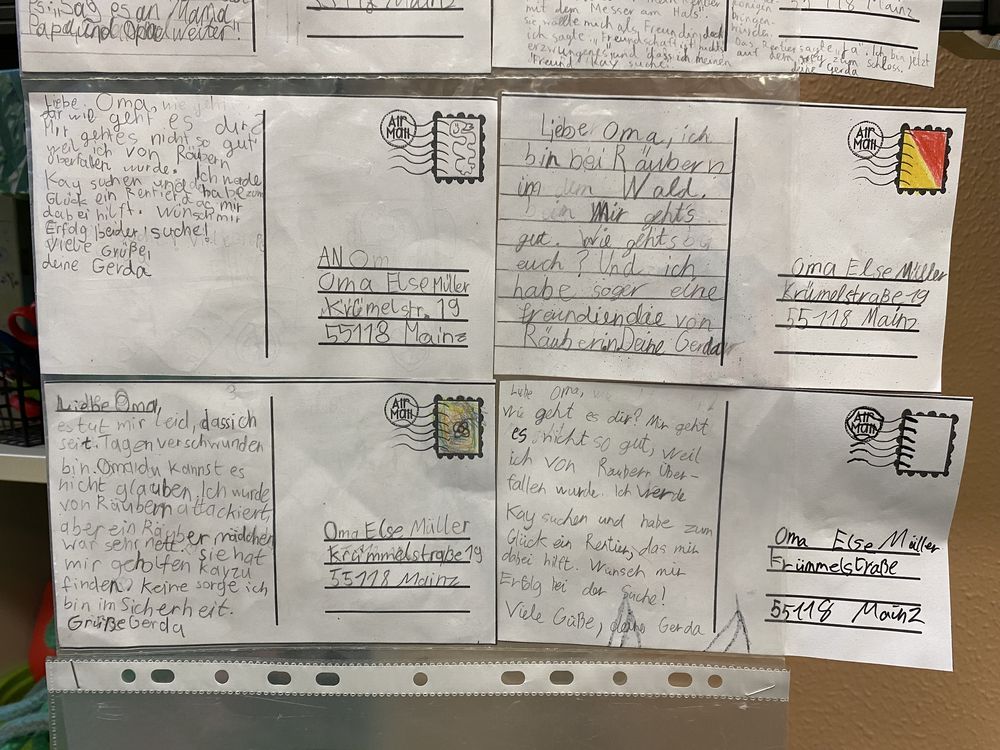 Papa und Opa weiter!
55118 Mainz
mit dem Messer am Hals!
ich sagte: "Freundschaft ist nichts
erzwungenes und dass ich meinen
Freund Kay suche.
55118 Mainz
Das Rentier sagte "Ja". Ich bin jetzt
auf dem zum Schloss.
deine Gerda
Liebe Oma, wie
wie geht es
Mir geht es nicht so gut
weil ich von Räubern
überfallen wurde. Ich
Kay suchen und habe zum
Glück ein Rentier das mir
dabei hilft. Wünsch mir
Erfolg bei der suche!
viele Grüße,
deine Gerda
AIR MAIL
AN Om
Oma Else Müller
Krümelstr. 19
55118 Mainz
Liebe Oma, ich
bin bei Räubern
im dem Wald.
Mir gehts
gut. Wie gehts
euch? Und ich
habe soger eine
freundien die von
Räubern. Deine Gerda
AIR MAIL
Oma Else Müller
Krümelstraße 19
55118 Mainz
Liebe Oma,
es tut mir leid, dass ich
seit. Tagen verschwunden
bin. Oma du kannst es
nicht glauben. Ich wurde
von Räubern attackiert,
aber ein Räuber mädchen
war sehr nett. sie hat
mir geholfen kay zu
finden. keine sorge ich
bin im Sicherheit.
Grüße Gerda
AIR MAIL
Oma Else Müller
Krümmelstraße 19
55118 Mainz
Liebe Oma,
wie geht es dir? Mir geht
es nicht so gut, weil
ich von Räubern über-
fallen wurde. Ich werde
Kay suchen und habe zum
Glück ein Rentier, das mir
dabei hilft. Wünsch mir
Erfolg bei der Suche!
Viele Güße, deine Gerda
AIR MAIL
Oma Else Müller
Frümmelstraße
55118 Mainz